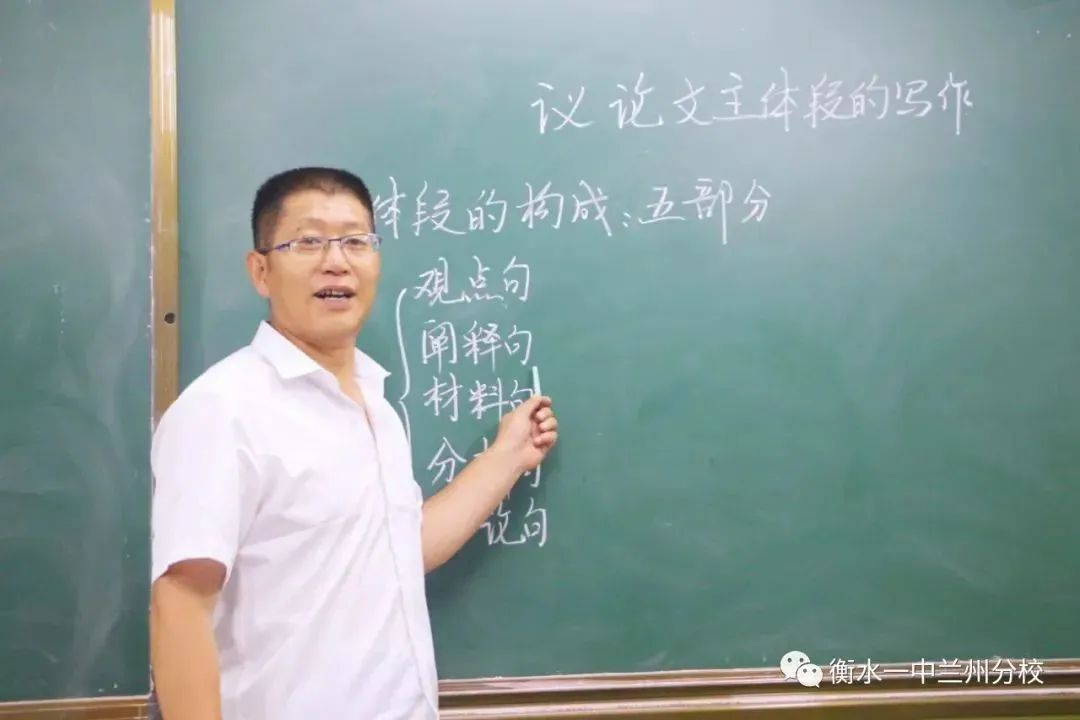 议论文主体段的写作
体段的构成:五部分
观点句
阐释句
材料句
分 句
论句
衡水一中兰州分校